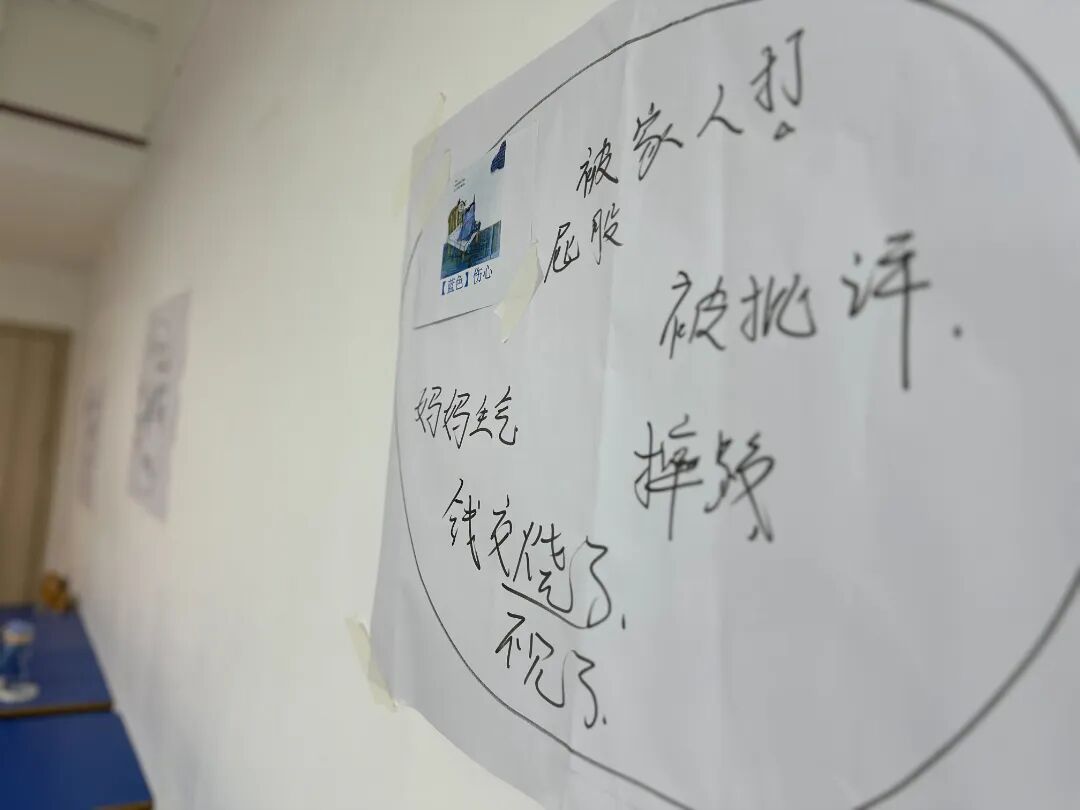 被家人打
屁股
【蓝色】伤心
被批评.
妈妈生气
摔跤
钱变
了.
不见了.